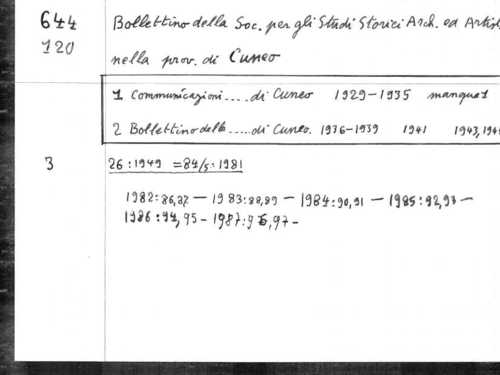 644 Bollettino della Soc. per gli Studi Storici Arch. ed Artis
120 nella prov. di Cuneo
1 Communicazioni .... di Cuneo 1929-1935 manque 1
2 Bollettino dell .... di Cuneo. 1936-1939 1941 1943, 194
3 26:1949 = 84/5:1981
1982:86,87 - 1983:88,89 - 1984:90,91 - 1985:92,93 -
1986:94,95 - 1987:96,97 -